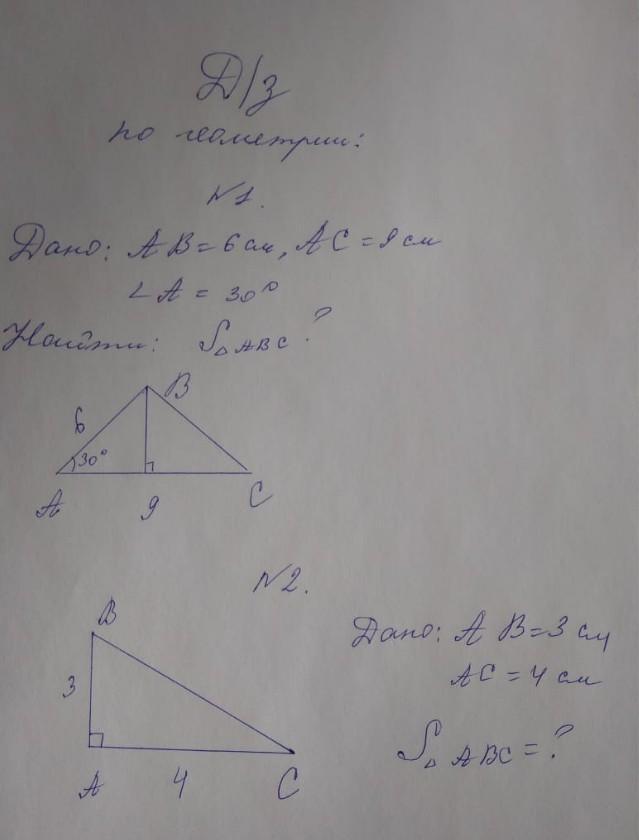 Д/з
по геометрии:
N1.
Дано: AB=6см, AC=9см
∠A = 30°
Найти: S△ABC ?
B
6
30°
A 9 C
N2.
B
Дано: AB=3 см
AC=4 см
3
S△ABC=?
A 4 C